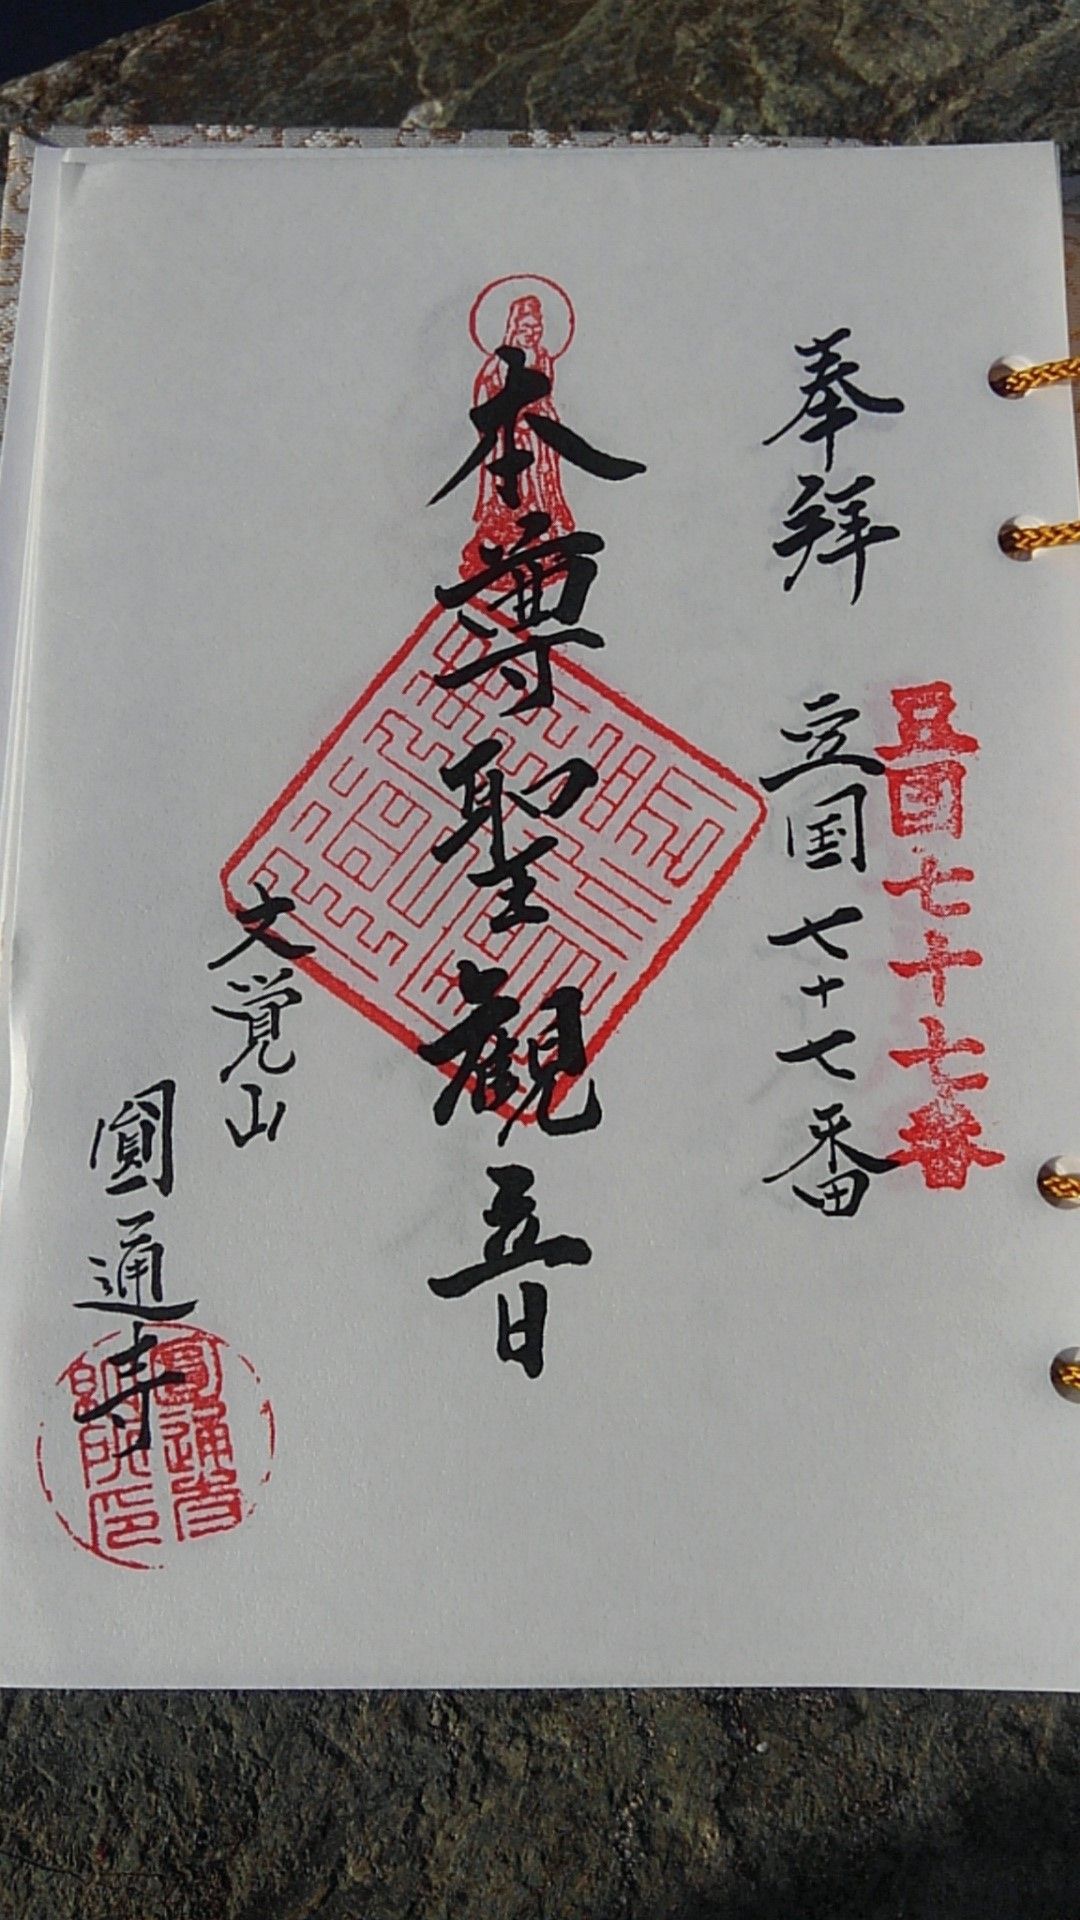 豆国七十七番
奉拝 豆国七十七番
本尊聖観音
文覚山
圓通寺
圓通寺